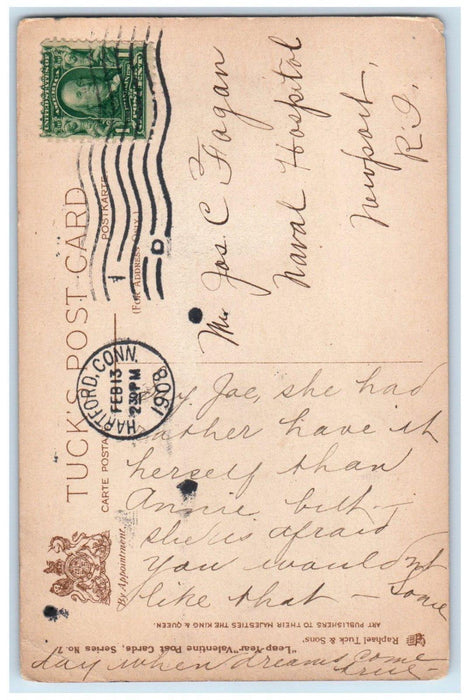 TUCK'S POST CARD
CARTE POSTALE
POSTKARTE
(FOR ADDRESS ONLY.)
By Appointment.
UNITED STATES OF AMERICA
HARTFORD, CONN.
FEB 13
2 30 PM
1908
Mr Jos. C Fagan
Naval Hospital
Newport
R.I.
Joe, she had
rather have it
herself than
Annie but -
she is afraid
you wouldn't
like that - Some
day when dreams come
true
Raphael Tuck & Sons'
"Leap-Year" Valentine Post Cards, Series No. 7
ART PUBLISHERS TO THEIR MAJESTIES THE KING & QUEEN.